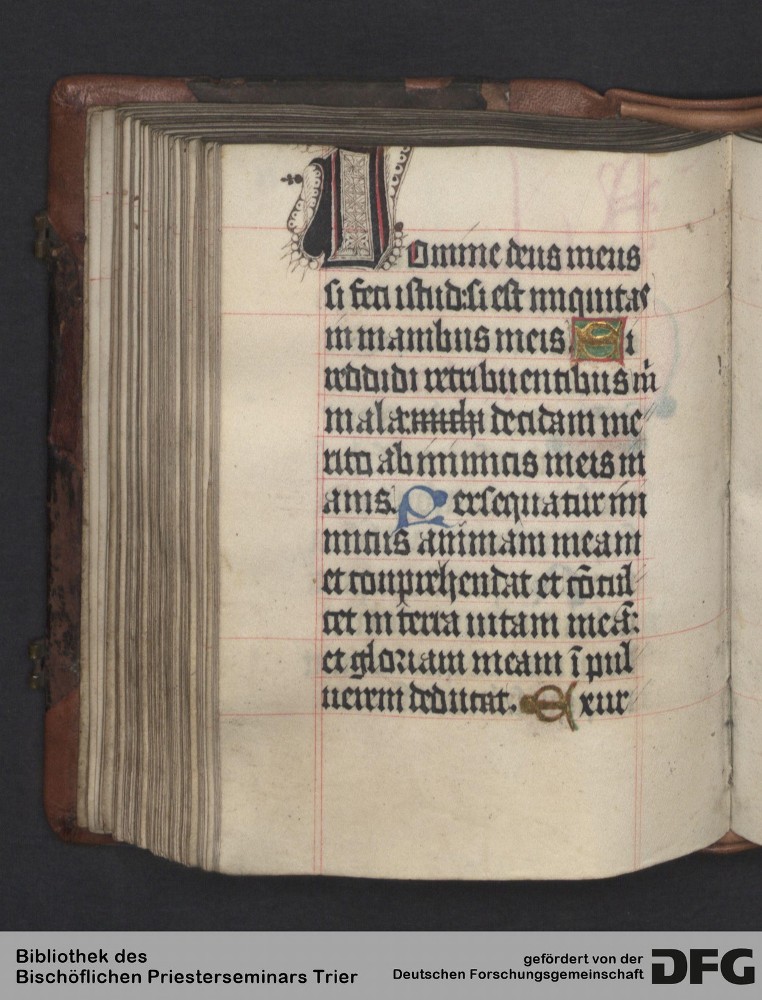 omine deus meus
si feci istud: si est iniquitas
in manibus meis Si
reddidi retribuentibus m̄
mala: decidam me
rito ab inimicis meis in
anis. Persequatur ini
micus animam meam
et conprehendat et cōcul
cet in terra uitam meā:
et gloriam meam ī pul
uerem deducat. Exur
Bibliothek des
Bischöflichen Priesterseminars Trier
gefördert von der
Deutschen Forschungsgemeinschaft
DFG